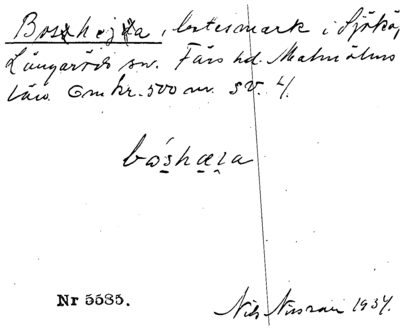 Boshejja, betesmark i Sjöbo,
Långaröds sn. Färs hd. Malmöhus
län. Omkr. 500 m. SV. 4.
bóshæɩa
Nr 5585.
Nils Nilsson 1937.